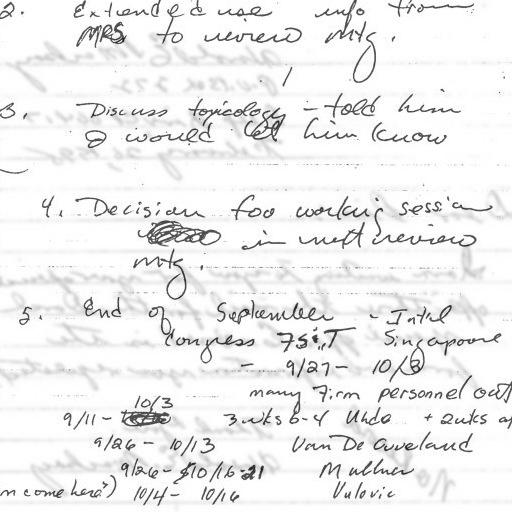 2. Extended use info from
MRS to review mtg.
3. Discuss toxicology - told him
I would let him know
4. Decision foo working session
in next review
mtg.
5. End of September - Intnl
Congress FSiT Singapoore
- 9/27 - 10/3
many Firm personnel out
10/3
9/11 - 3 wks b-4 Unda + 2wks
9/26 - 10/13 Van De Cuveland
9/26 - 10/16-21 Mullner
come here?) 10/4 - 10/16 Vulovic